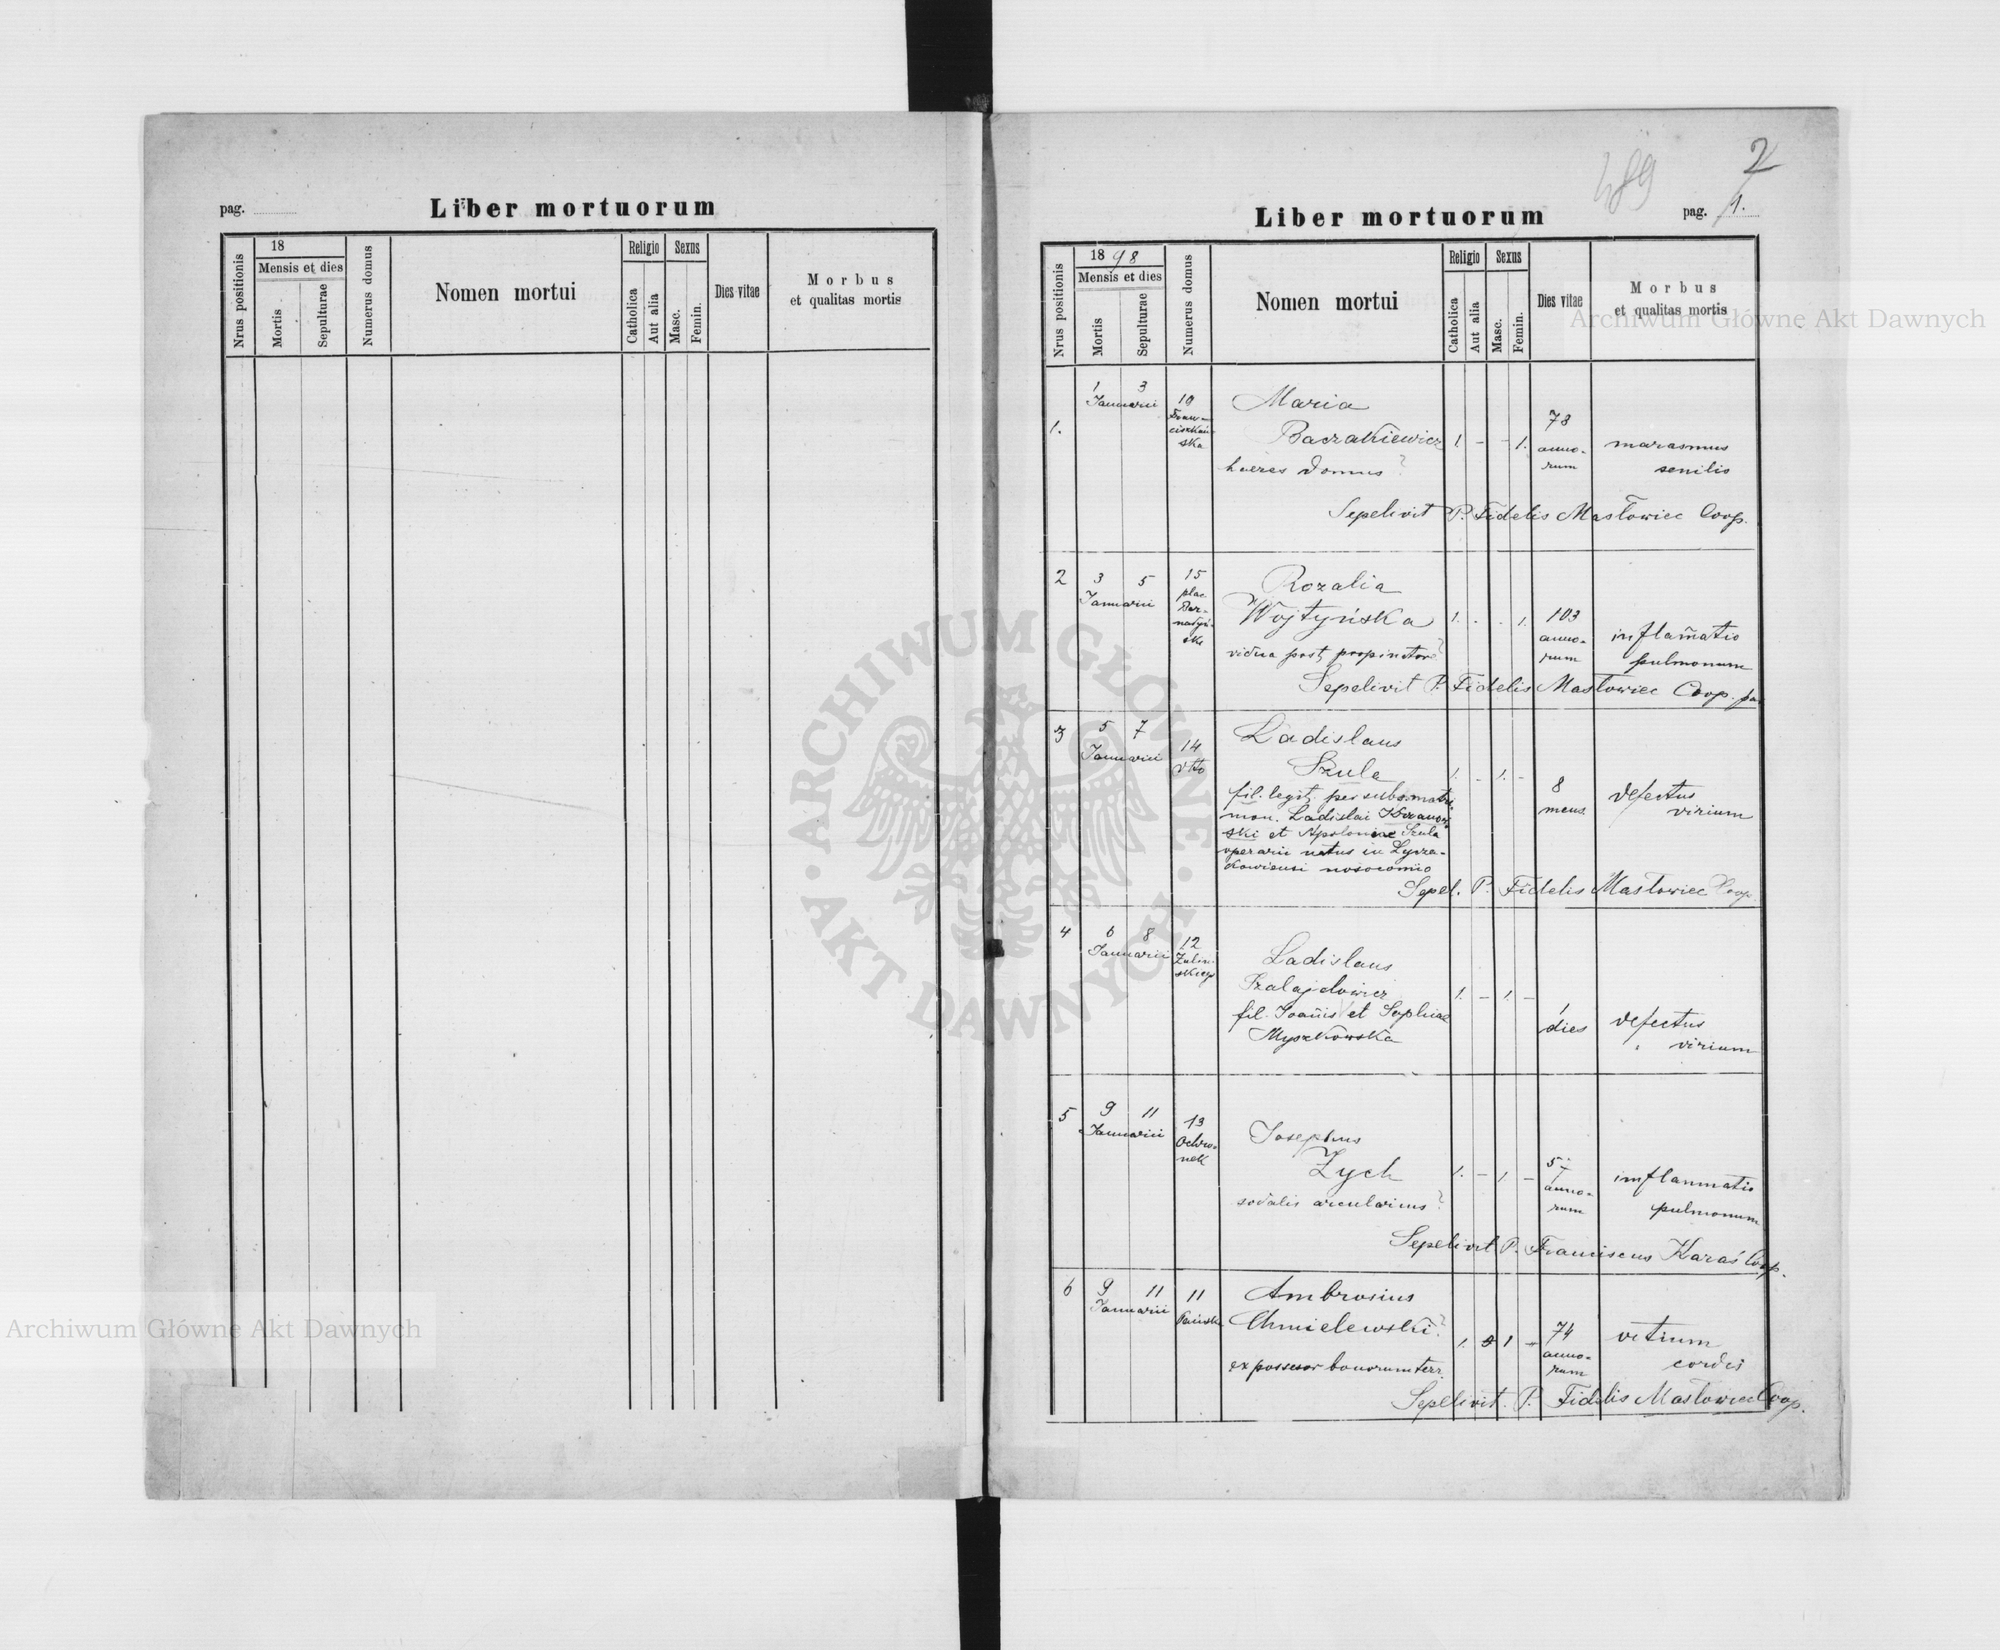 pag.
Liber mortuorum
Nrus positionis
18
Mensis et dies
Mortis
Sepulturae
Numerus domus
Nomen mortui
Religio
Catholica
Aut alia
Sexus
Masc.
Femin.
Dies vitae
Morbus
et qualitas mortis
489
2
Liber mortuorum
pag. 1.
Nrus positionis
1898
Mensis et dies
Mortis
Sepulturae
Numerus domus
Nomen mortui
Religio
Catholica
Aut alia
Sexus
Masc.
Femin.
Dies vitae
Morbus
et qualitas mortis
1.
1 3
Januarii
10
Fran-
ciszkań-
ska
Maria
Baczakiewicz
haeres domus ?
1. - - 1.
78
anno-
rum
marasmus
senilis
Sepelivit P. Fidelis Masłowiec Coop.
2
3 5
Januarii
15
plac
Ber-
nadyń-
ski
Rozalia
Wojtyńska
vidua post propinator ?
1. . . 1.
103
anno-
rum
inflam̃atio
pulmonum
Sepelivit P. Fidelis Masłowiec Coop.
3
5 7
Januarii
14
dtto
Ladislaus
Szula
fil. legit. per subs. matri-
mon. Ladislai Krzanow-
ski et Apoloniae Szula
operarii natus in Lycza-
koviensi nosocomio
1. - 1. -
8
mens.
defectus
virium
Sepel. P. Fidelis Masłowiec Coop.
4
6 8
Januarii
12
Zulin-
skiego
Ladislaus
Szalajdowicz
fil. Joañis et Sophiae
Myszkowska
1. - 1. -
1
dies
defectus
virium
5
9 11
Januarii
13
Ochro-
nek
Josephus
Zych
sodalis arcularius ?
1. - 1 -
anno-
rum
inflammatio
pulmonum
Sepelivit P. Franciscus Karaś Coop.
6
9 11
Januarii
11
Pańska
Ambrosius
Chmielewski ?
ex possesor bonorum terr.
1. 1 -
74
anno-
rum
vitium
cordis
Sepelivit P. Fidelis Masłowiec Coop.
Archiwum Główne Akt Dawnych
Archiwum Główne Akt Dawnych
ARCHIWUM GŁÓWNE
AKT DAWNYCH